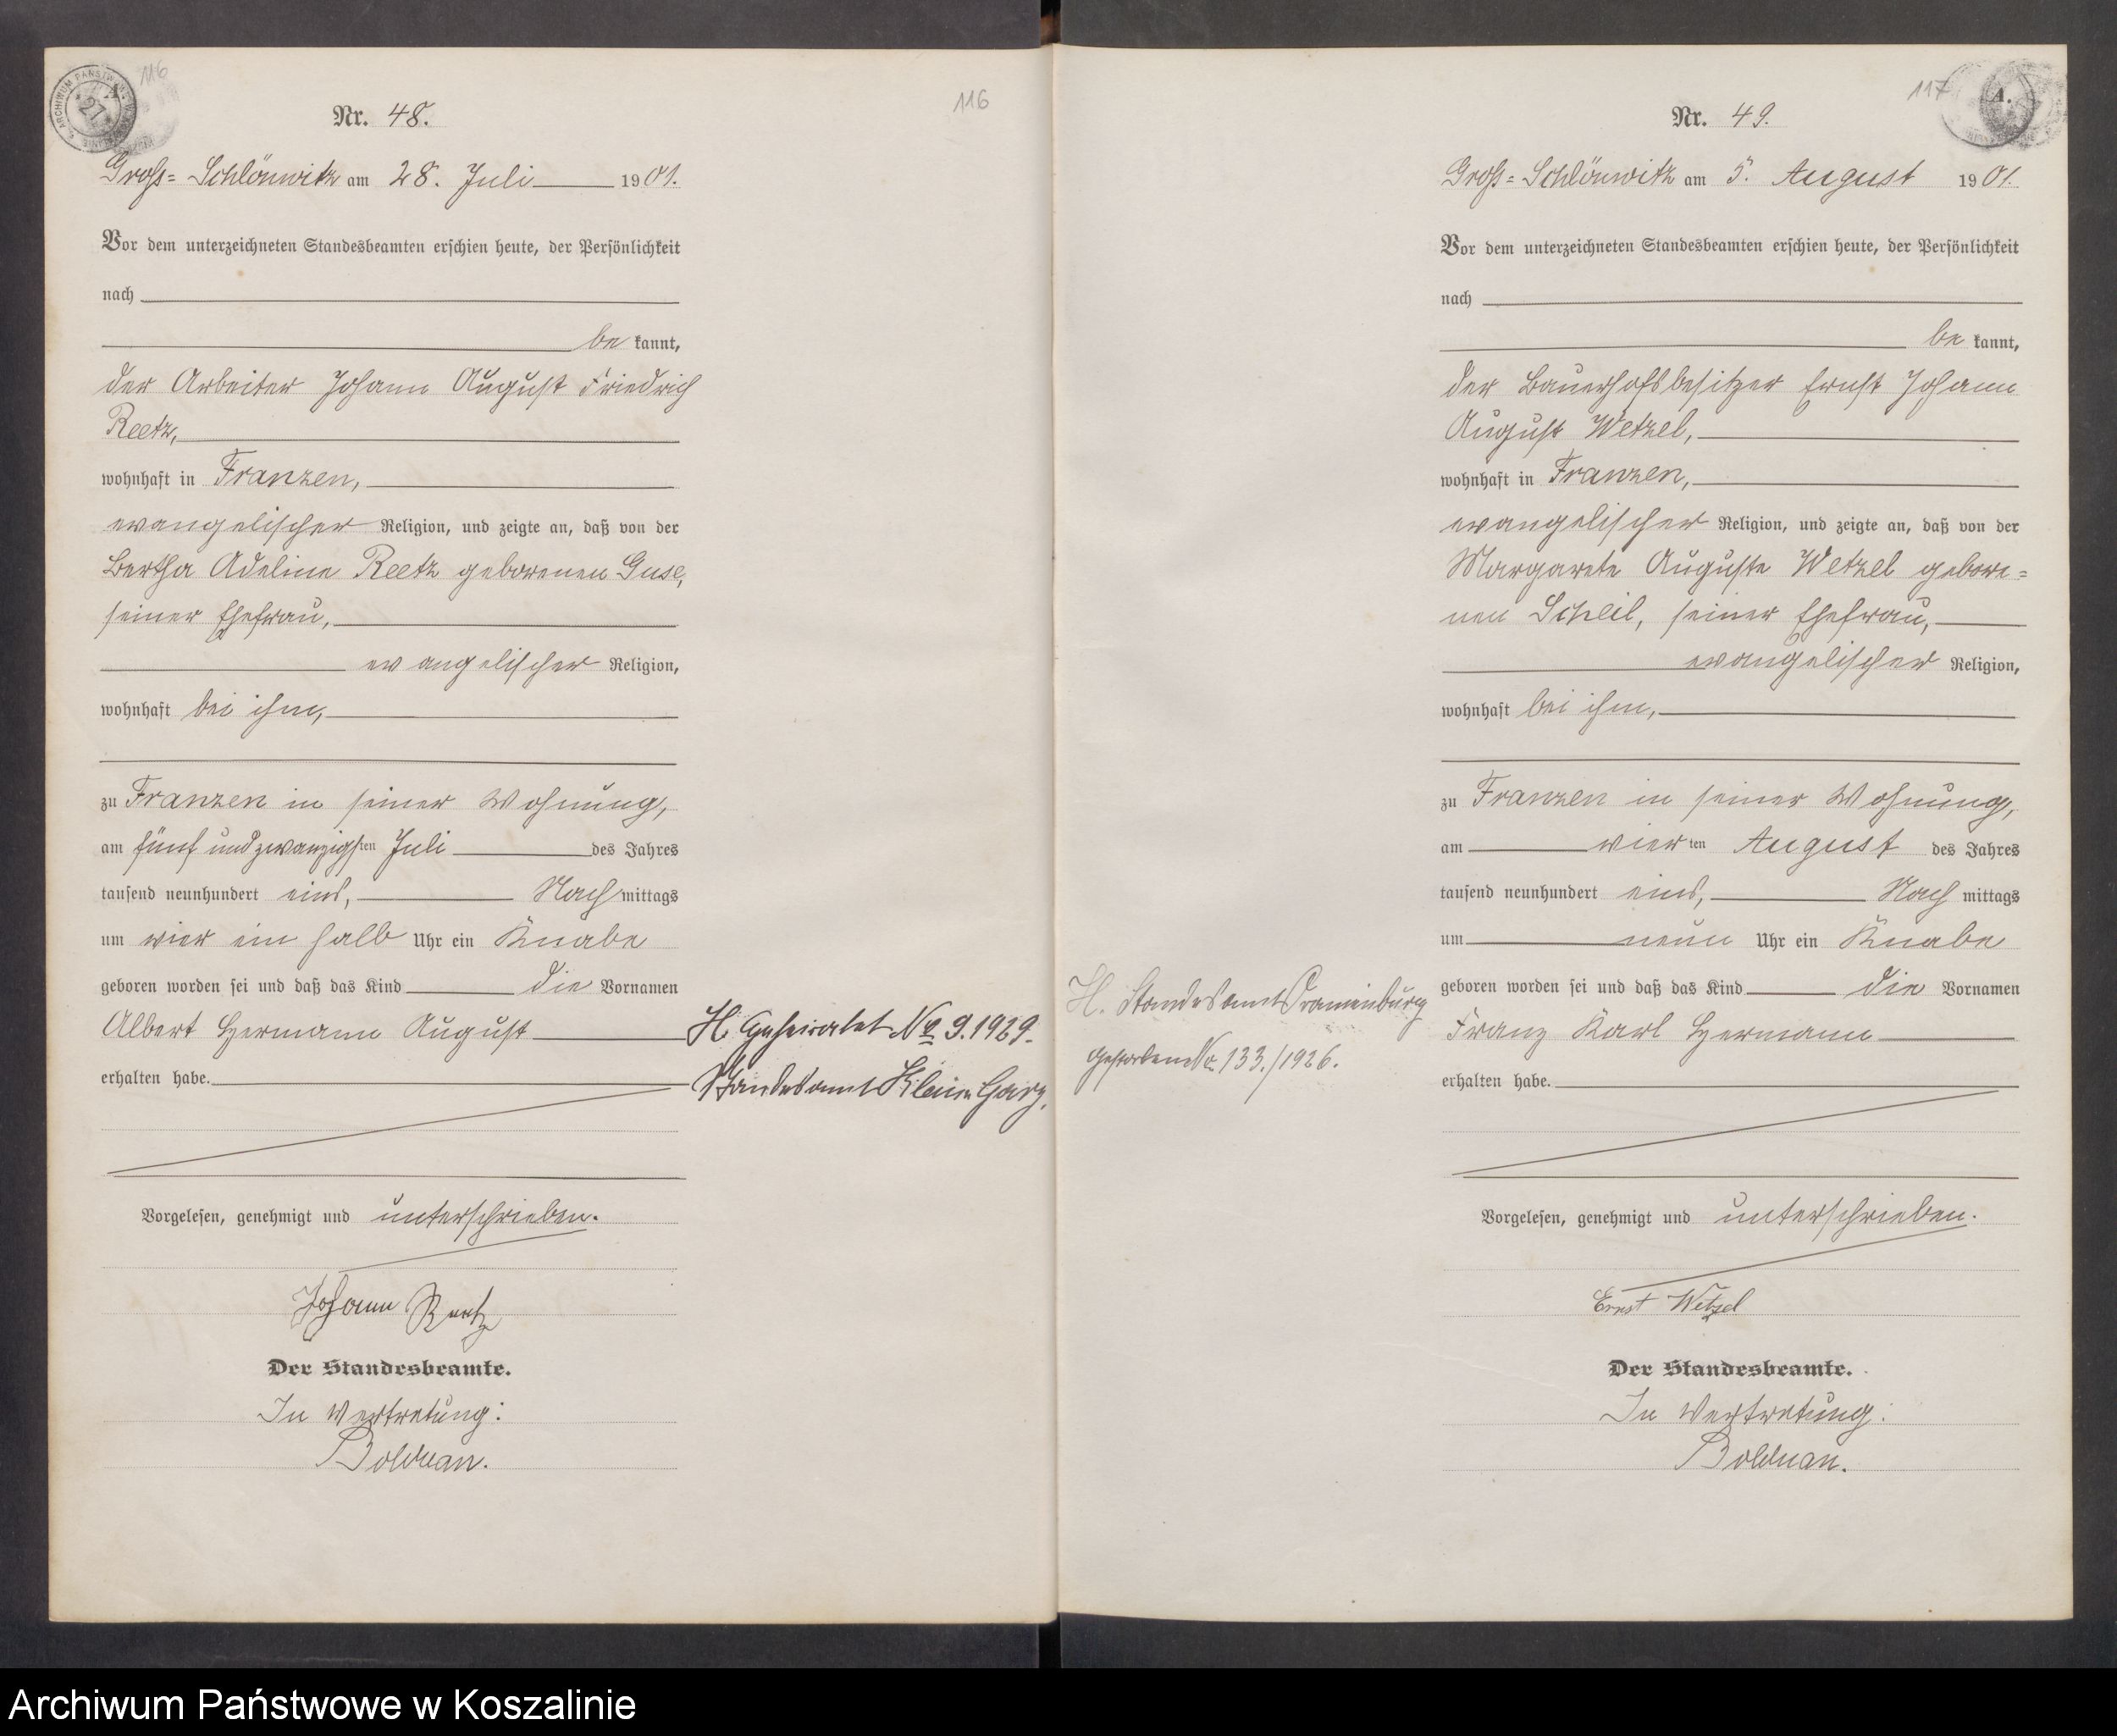 116
116
A.
Nr. 48.
Groß-Schlönwitz am 28. Juli 1901.
Vor dem unterzeichneten Standesbeamten erschien heute, der Persönlichkeit
nach
be kannt,
der Arbeiter Johann August Friedrich
Reetz,
wohnhaft in Franzen,
evangelischer Religion, und zeigte an, daß von der
Bertha Adeline Reetz geborenen Guse,
seiner Ehefrau,
evangelischer Religion,
wohnhaft bei ihm,
zu Franzen in seiner Wohnung,
am fünf und zwanzigsten Juli des Jahres
tausend neunhundert eins, Nach mittags
um vier ein halb Uhr ein Knabe
geboren worden sei und daß das Kind die Vornamen
Albert Hermann August
erhalten habe.
H. Geheiratet No 9. 1929.
Standesamt Klein Garz.
Vorgelesen, genehmigt und unterschrieben.
Johann Reetz
Der Standesbeamte.
In Vertretung:
Bolduan.
117
A.
Nr. 49.
Groß-Schlönwitz am 5. August 1901.
Vor dem unterzeichneten Standesbeamten erschien heute, der Persönlichkeit
nach
be kannt,
der Bauerhofsbesitzer Ernst Johann
August Wetzel,
wohnhaft in Franzen,
evangelischer Religion, und zeigte an, daß von der
Margarete Auguste Wetzel gebore=
nen Scheil, seiner Ehefrau,
evangelischer Religion,
wohnhaft bei ihm,
zu Franzen in seiner Wohnung,
am vierten August des Jahres
tausend neunhundert eins, Nach mittags
um neun Uhr ein Knabe
geboren worden sei und daß das Kind die Vornamen
Franz Karl Hermann
erhalten habe.
H. Standesamt
Gestorben No. 133./1926.
Vorgelesen, genehmigt und unterschrieben.
Ernst Wetzel
Der Standesbeamte.
In Vertretung:
Bolduan.
Archiwum Państwowe w Koszalinie